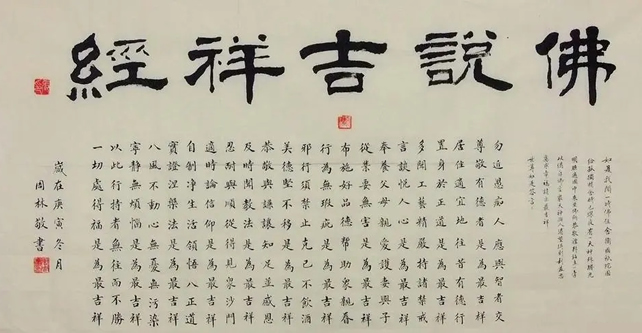 佛說吉祥經
如是我聞一時佛住舍衛國祇陀園
給孤獨精舍時已深夜有一天神殊勝光
世尊如是答言
勿近愚痴人應與智者交
尊敬有德者是為最吉祥
居住適宜地往昔有德行
置身於正道是為最吉祥
多聞工藝精嚴持諸禁戒
言談悅人心是為最吉祥
奉養父母親愛護妻與子
從業要無害是為最吉祥
布施好品德幫助眾親眷
行為無瑕疵是為最吉祥
邪行須禁止克己不飲酒
美德堅不移是為最吉祥
恭敬與謙讓知足並感恩
及時聞教法是為最吉祥
忍耐與順從得見眾沙門
適時論信仰是為最吉祥
自制淨生活領悟八正道
實證涅槃法是為最吉祥
八風不動心無憂無污染
寧靜無煩惱是為最吉祥
以此行持者無往而不勝
一切處得福是為最吉祥
歲在庚寅冬月
周林敬書